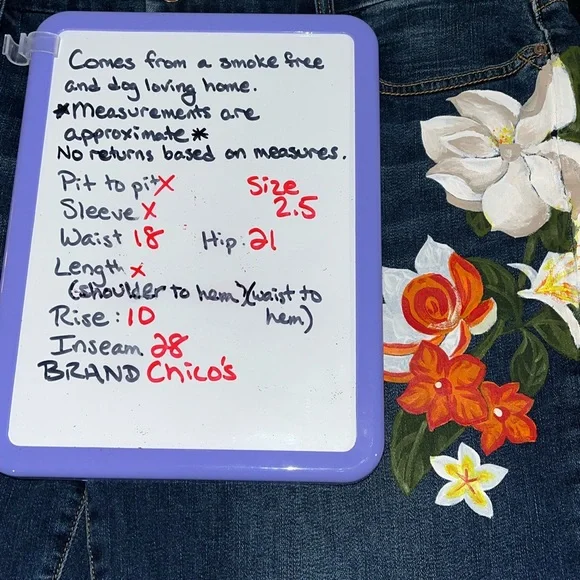 Comes from a smoke free
and dog loving home.
*Measurements are
approximate*
No returns based on measures.
Pit to pit X Size
Sleeve X 2.5
Waist 18 Hip: 21
Length x
(shoulder to hem)(waist to
Rise: 10 hem)
Inseam 28
BRAND Chico's